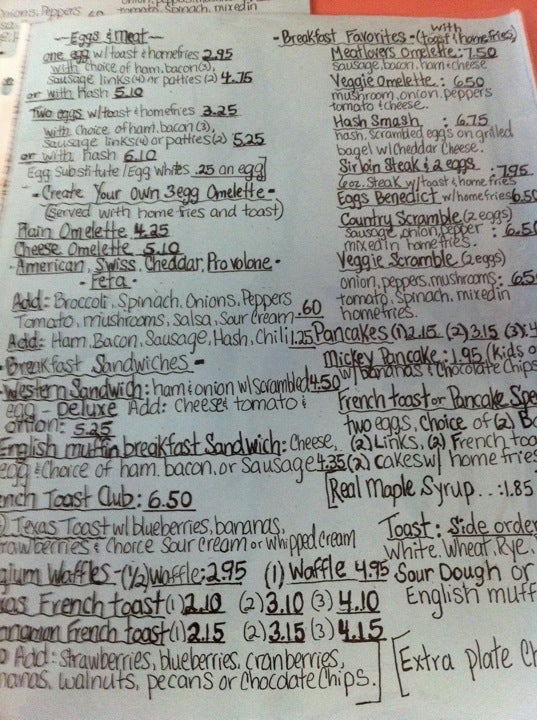 onions, Peppers
tomato, Spinach, mixed in
- Eggs & Meat -
one egg w/toast & homefries 2.95
with choice of ham, bacon(3),
sausage links(4) or patties(2) 4.75
or with Hash 5.10
Two eggs w/toast & homefries 3.25
with choice of ham, bacon(3),
sausage links(4) or patties(2) 5.25
or with hash 6.10
Egg Substitute/Egg Whites .25 an egg]
- Create Your Own 3 egg Omelette -
(served with home fries and toast)
Plain Omelette 4.25
Cheese Omelette 5.10
- American, Swiss, Cheddar, Provolone -
- Feta -
Add: Broccoli, Spinach, Onions, Peppers
Tomato, mushrooms, Salsa, Sour Cream .60
Add: Ham, Bacon, Sausage, Hash, Chili 1.25
- Breakfast Sandwiches -
Western Sandwich: ham & onion w/scrambled 4.50
egg - Deluxe Add: Cheese & tomato &
onion: 5.25
English muffin breakfast Sandwich: Cheese,
egg & Choice of ham, bacon, or Sausage 4.35
nch Toast Club: 6.50
) Texas Toast w/ blueberries, bananas,
rawberries & Choice Sour Cream or Whipped Cream
gium Waffles - (1/2) Waffle: 2.95 (1) Waffle 4.95
xas French toast (1) 2.10 (2) 3.10 (3) 4.10
French toast (1) 2.15 (2) 3.15 (3) 4.15
Add: Strawberries, blueberries, cranberries,
nanas, walnuts, pecans or Chocolate Chips.]
- Breakfast Favorites - with (toast & homefries)
Meatlovers Omelette: 7.50
sausage, bacon, ham & cheese
Veggie Omelette: 6.50
mushroom, onion, peppers
tomato & cheese.
Hash Smash : 6.75
hash, scrambled eggs on grilled
bagel w/Cheddar Cheese.
Sirloin Steak & 2 eggs : 7.95
6oz. Steak w/toast & home fries
Eggs Benedict w/homefries 6.50
Country Scramble (2 eggs)
sausage, onion, pepper : 6.50
mixed in home fries.
Veggie Scramble (2 eggs)
onion, peppers, mushrooms: 6.5
tomato, Spinach, mixed in
home fries.
Pancakes (1) 2.15 (2) 3.15 (3)
Mickey Pancake: 1.95 (Kids o
w/ bananas & Chocolate Chips
French toast or Pancake Spe
two eggs, choice of (2) B
(2) Links, (2) French toa
(2) Cakes w/ home fries
[Real Maple Syrup..: 1.85
Toast: Side order
White, Wheat, Rye,
Sour Dough or
English muff
[Extra Plate Ch